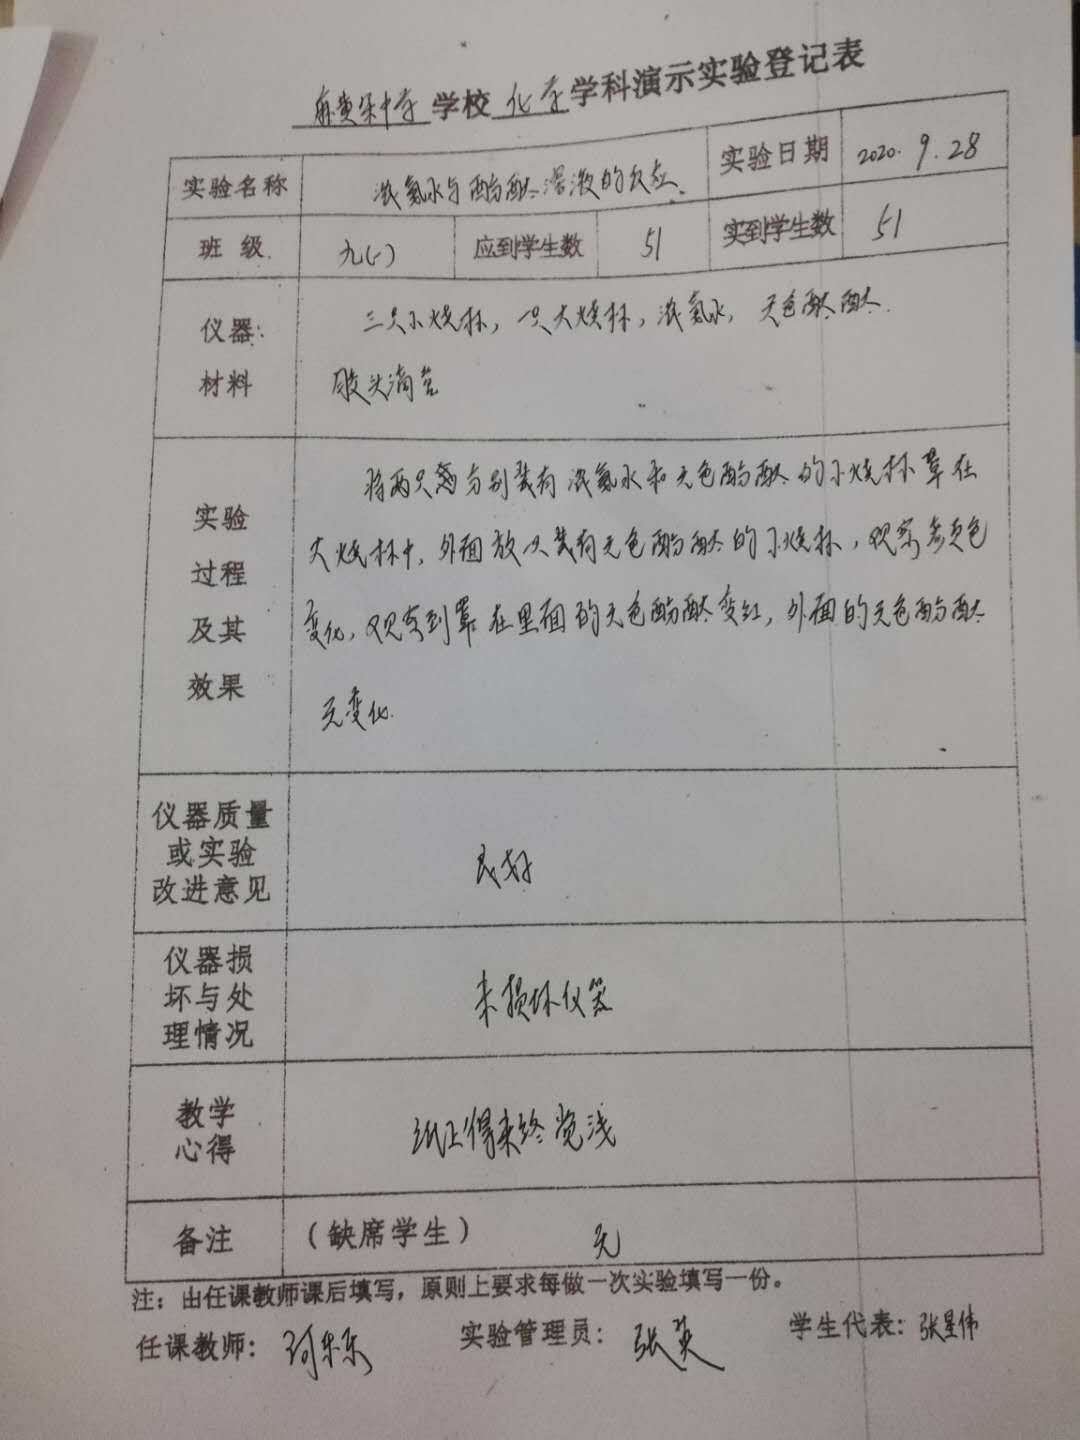 麻黄梁中学学校化学学科演示实验登记表
实验名称 浓氨水与酚酞溶液的反应 实验日期 2020.9.28
班级 九(一) 应到学生数 51 实到学生数 51
仪器: 三只小烧杯，一只大烧杯，浓氨水，无色酚酞.
材料 胶头滴管
将两只分别装有浓氨水和无色酚酞的小烧杯罩在
实验
过程 大烧杯中，外面放一只装有无色酚酞的小烧杯，观察颜色
及其 变化，观察到罩在里面的无色酚酞变红，外面的无色酚酞
效果 无变化.
仪器质量
或实验 良好
改进意见
仪器损
坏与处 未损坏仪器
理情况
教学 纸上得来终觉浅
心得
备注 (缺席学生) 无
注：由任课教师课后填写，原则上要求每做一次实验填写一份。
任课教师： 实验管理员：张英 学生代表：张星伟